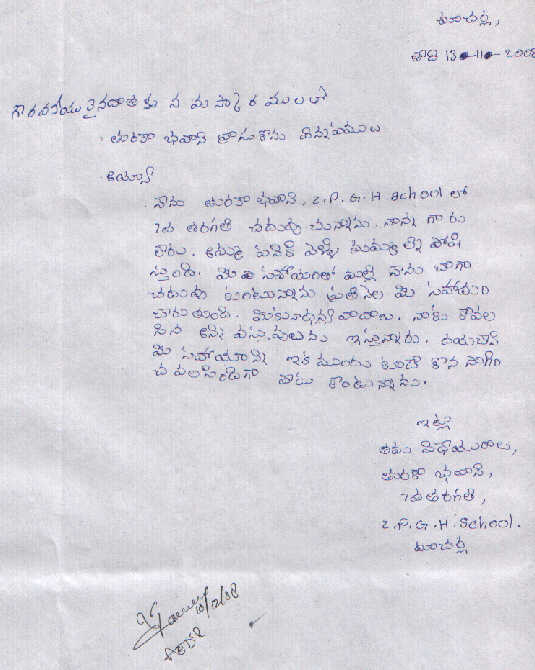 కూచర్ల,
తేది 13-11-2008
గౌరవనీయులైన దాతకు నమస్కారములతో
తురకా భవాని వ్రాసుకొను విన్నపములు
అయ్యా
నేను తురకా భవాని, Z.P.G.H School లో
7వ తరగతి చదువుచున్నాను. నాన్న గారు
లేరు. అమ్మ పనికి వెళ్ళి మమ్మల్ని పోషి
స్తుంది. మీ సహాయంతో నేను బాగా
చదువు కుంటున్నాను ప్రతినెల మీ సహాయం
అందుతుంది. మీకు ధన్యవాదాలు. నాకు కావల
సిన అన్ని వస్తువులను ఇస్తున్నారు. దయచేసి
మీ సహాయాన్ని ఇక ముందు కూడా కొన సాగిం
చ వలసినదిగా వేడు కొంటున్నాను.
ఇట్లు
తమ విధేయురాలు,
తురకా భవాని,
7వ తరగతి,
Z.P.G.H School.
కూచర్ల
10/12/08